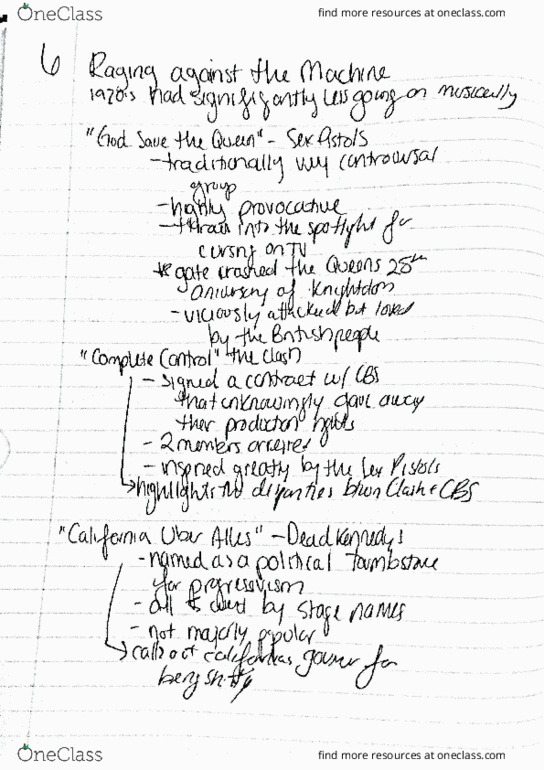 OneClass
find more resources at oneclass.com
6 Raging against the Machine
1970's had significantly less going on musically
"God Save the Queen" - Sex Pistols
- traditionally very controversal
group
- highly provocative
- thrown into the spotlight for
cursing on TV
gate crashed the Queens 25th
of Knightdom
- viciously attacked but loved
by the British people
"Complete Control" the Clash
- signed a contract w/ CBS
that unknowingly gave away
their production rights
- 2 members arrested
- inspired greatly by the Sex Pistols
highlights the disparities btwn Clash + CBS
"California Uber Alles" - Dead Kennedys
- named as a political tombstone
for progressivism
- all by stage names
- not majorly popular
calls out californias governer for
being shitty
OneClass
find more resources at oneclass.com